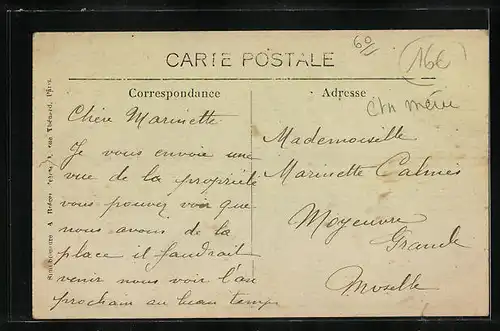 60/1
16€
CARTE POSTALE
Correspondance
Adresse
Chère Marinette
Je vous envoie une
vue de la propriété
vous pouvez voir que
nous avons de la
place il faudrait
venir nous voir l'an
prochain au beau temps
Mademoiselle
Marinette Calmes
Moyeuvre
Grande
Moselle
Thénard, Paris.